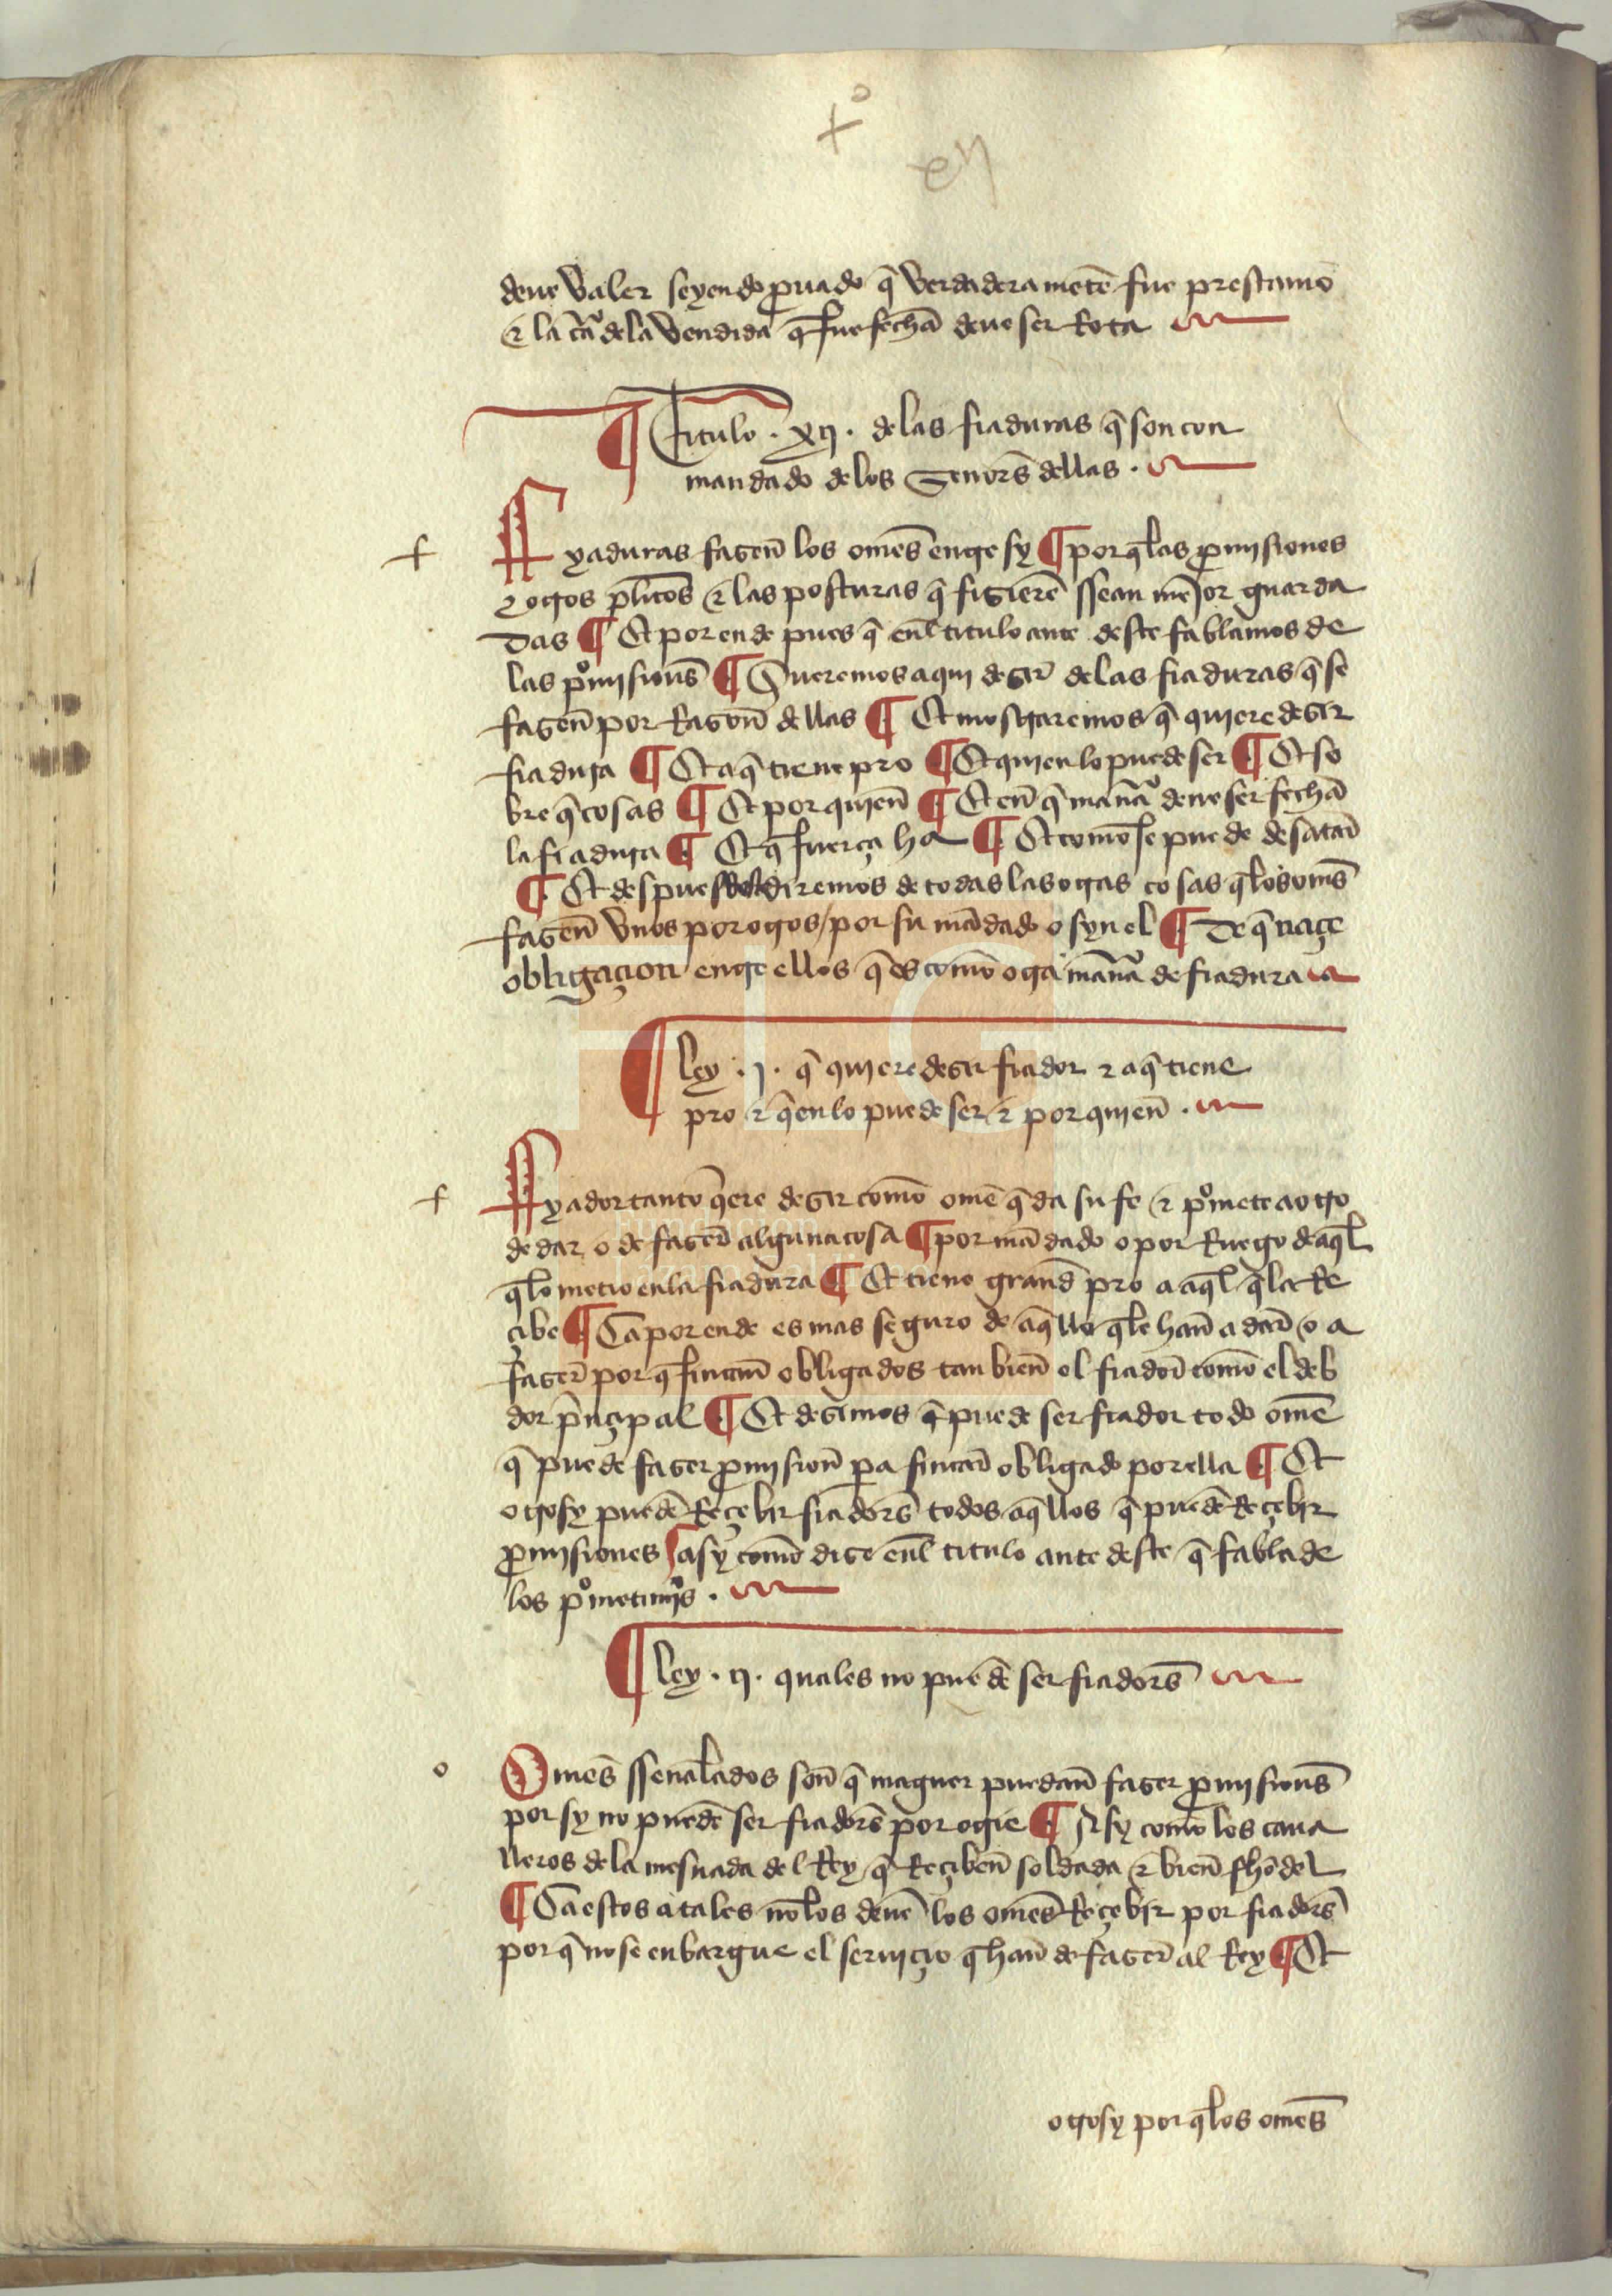 xº
en
deue valer seyendo prouado q̃ verdadera mẽte fue prestamo
⁊ la cã de la vendida q̃ fue fecha deue ser Rota
¶ Titulo . xij . de las fiaduras q̃ son con
mandado de los Senors̃ dellas .
Fyaduras fazen̄ los omẽs entre sy ¶ por q̃ las promisiones
⁊ otros pl̃itos ⁊ las posturas q̃ fizierẽ ssean meior guarda
das ¶ Et por ende pues q̃ enl̃ titulo ante deste fablamos de
las pºmisions̃ ¶ Queremos aqui dezir de las fiaduras q̃ se
fazen̄ por Razon̄ dellas ¶ Et mostraremos q̃ quiere dezir
fiadura ¶ Et a q̃ tiene pro ¶ Et quien lo puede ser ¶ Et so
bre q̃ cosas ¶ Et por quien̄ ¶ Et en̄ q̃ manã deue ser fecha
la fiadura ¶ Et q̃ fuerça ha ¶ Et como se puede desatar̃
¶ Et despues diremos de todas las otras cosas q̃ los oms̃
fazen̄ vnos por otros / por su mãdado o syn el ¶ De q̃ naçe
obligaçion entre ellos q̃ es como otra manã de fiadura
¶ ley . j . q̃ quiere dezir fiador ⁊ a q̃ tiene
pro ⁊ q̃en lo puede ser ⁊ por quien̄ .
Fyador tanto q̃ere dezir como ome q̃ da su fe ⁊ pºmete a otro
de dar o de fazer̃ alguna cosa ¶ por mãdado o por Ruego de aql̃
q̃ lo metio en la fiadura ¶ Et tiene grand̃ pro a aql̃ q̃ la Re
çibe ¶ Ca por ende es mas seguro de aq̃llo q̃ le han̄ a dar̃ o a
fazer̃ por q̃ fincan̄ obligados tan bien̄ el fiador̃ como el deb
dor pñçipal ¶ Et dezimos q̃ puede ser fiador todo omẽ
q̃ puede fazer promision̄ pa fincar̃ obligado por ella ¶ Et
otrosy puedẽ Reçebir fiadors̃ todos aq̃llos q̃ puedẽ Reçebir
promisiones asy como dize enl̃ titulo ante deste q̃ fabla de
los pºmetimjºs .
¶ ley . ij . quales no puedẽ ser fiadors̃
Omẽs ssenalados son̄ q̃ maguer puedan̄ fazer promisions̃
por sy no puedẽ ser fiadors̃ por otrie ¶ Asy como los caua
lleros de la mesnada del Rey q̃ Reçiben̄ soldada ⁊ bien̄ fho del
¶ Ca estos atales no los deuẽ los omẽs Reçebir por fiadors̃
por q̃ no se enbargue el seruiçio q̃ han̄ de fazer̃ al Rey ¶ Et
otrosy por q̃ los omẽs